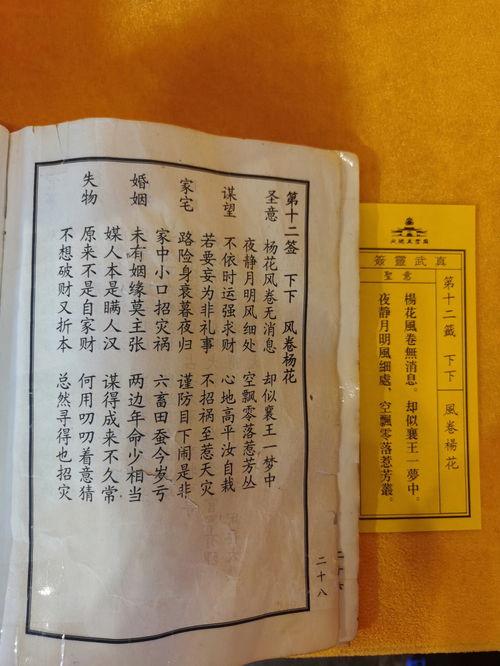 第十二签 下下 风卷杨花
圣意 杨花风卷无消息 却似襄王一梦中
夜静月明风细处 空飘零落惹芳丛
谋望 不依时运强求财 心地高平汝自栽
若要妄为非礼事 不招祸至惹天灾
家宅 路险身衰暮夜归 谨防目下闹是非
家中小口招灾祸 六畜田蚕今岁亏
婚姻 未有姻缘莫主张 两边年命少相当
媒人本是瞒人汉 谋得成来不久常
失物 原来不是自家财 何用叨叨着意猜
不想破财又折本 总然寻得也招灾
二十八
真武靈籤
第十二籤 下下 風卷楊花
聖意
楊花風卷無消息。却似襄王一夢中。
夜静月明風細處、空飄零落惹芳叢。